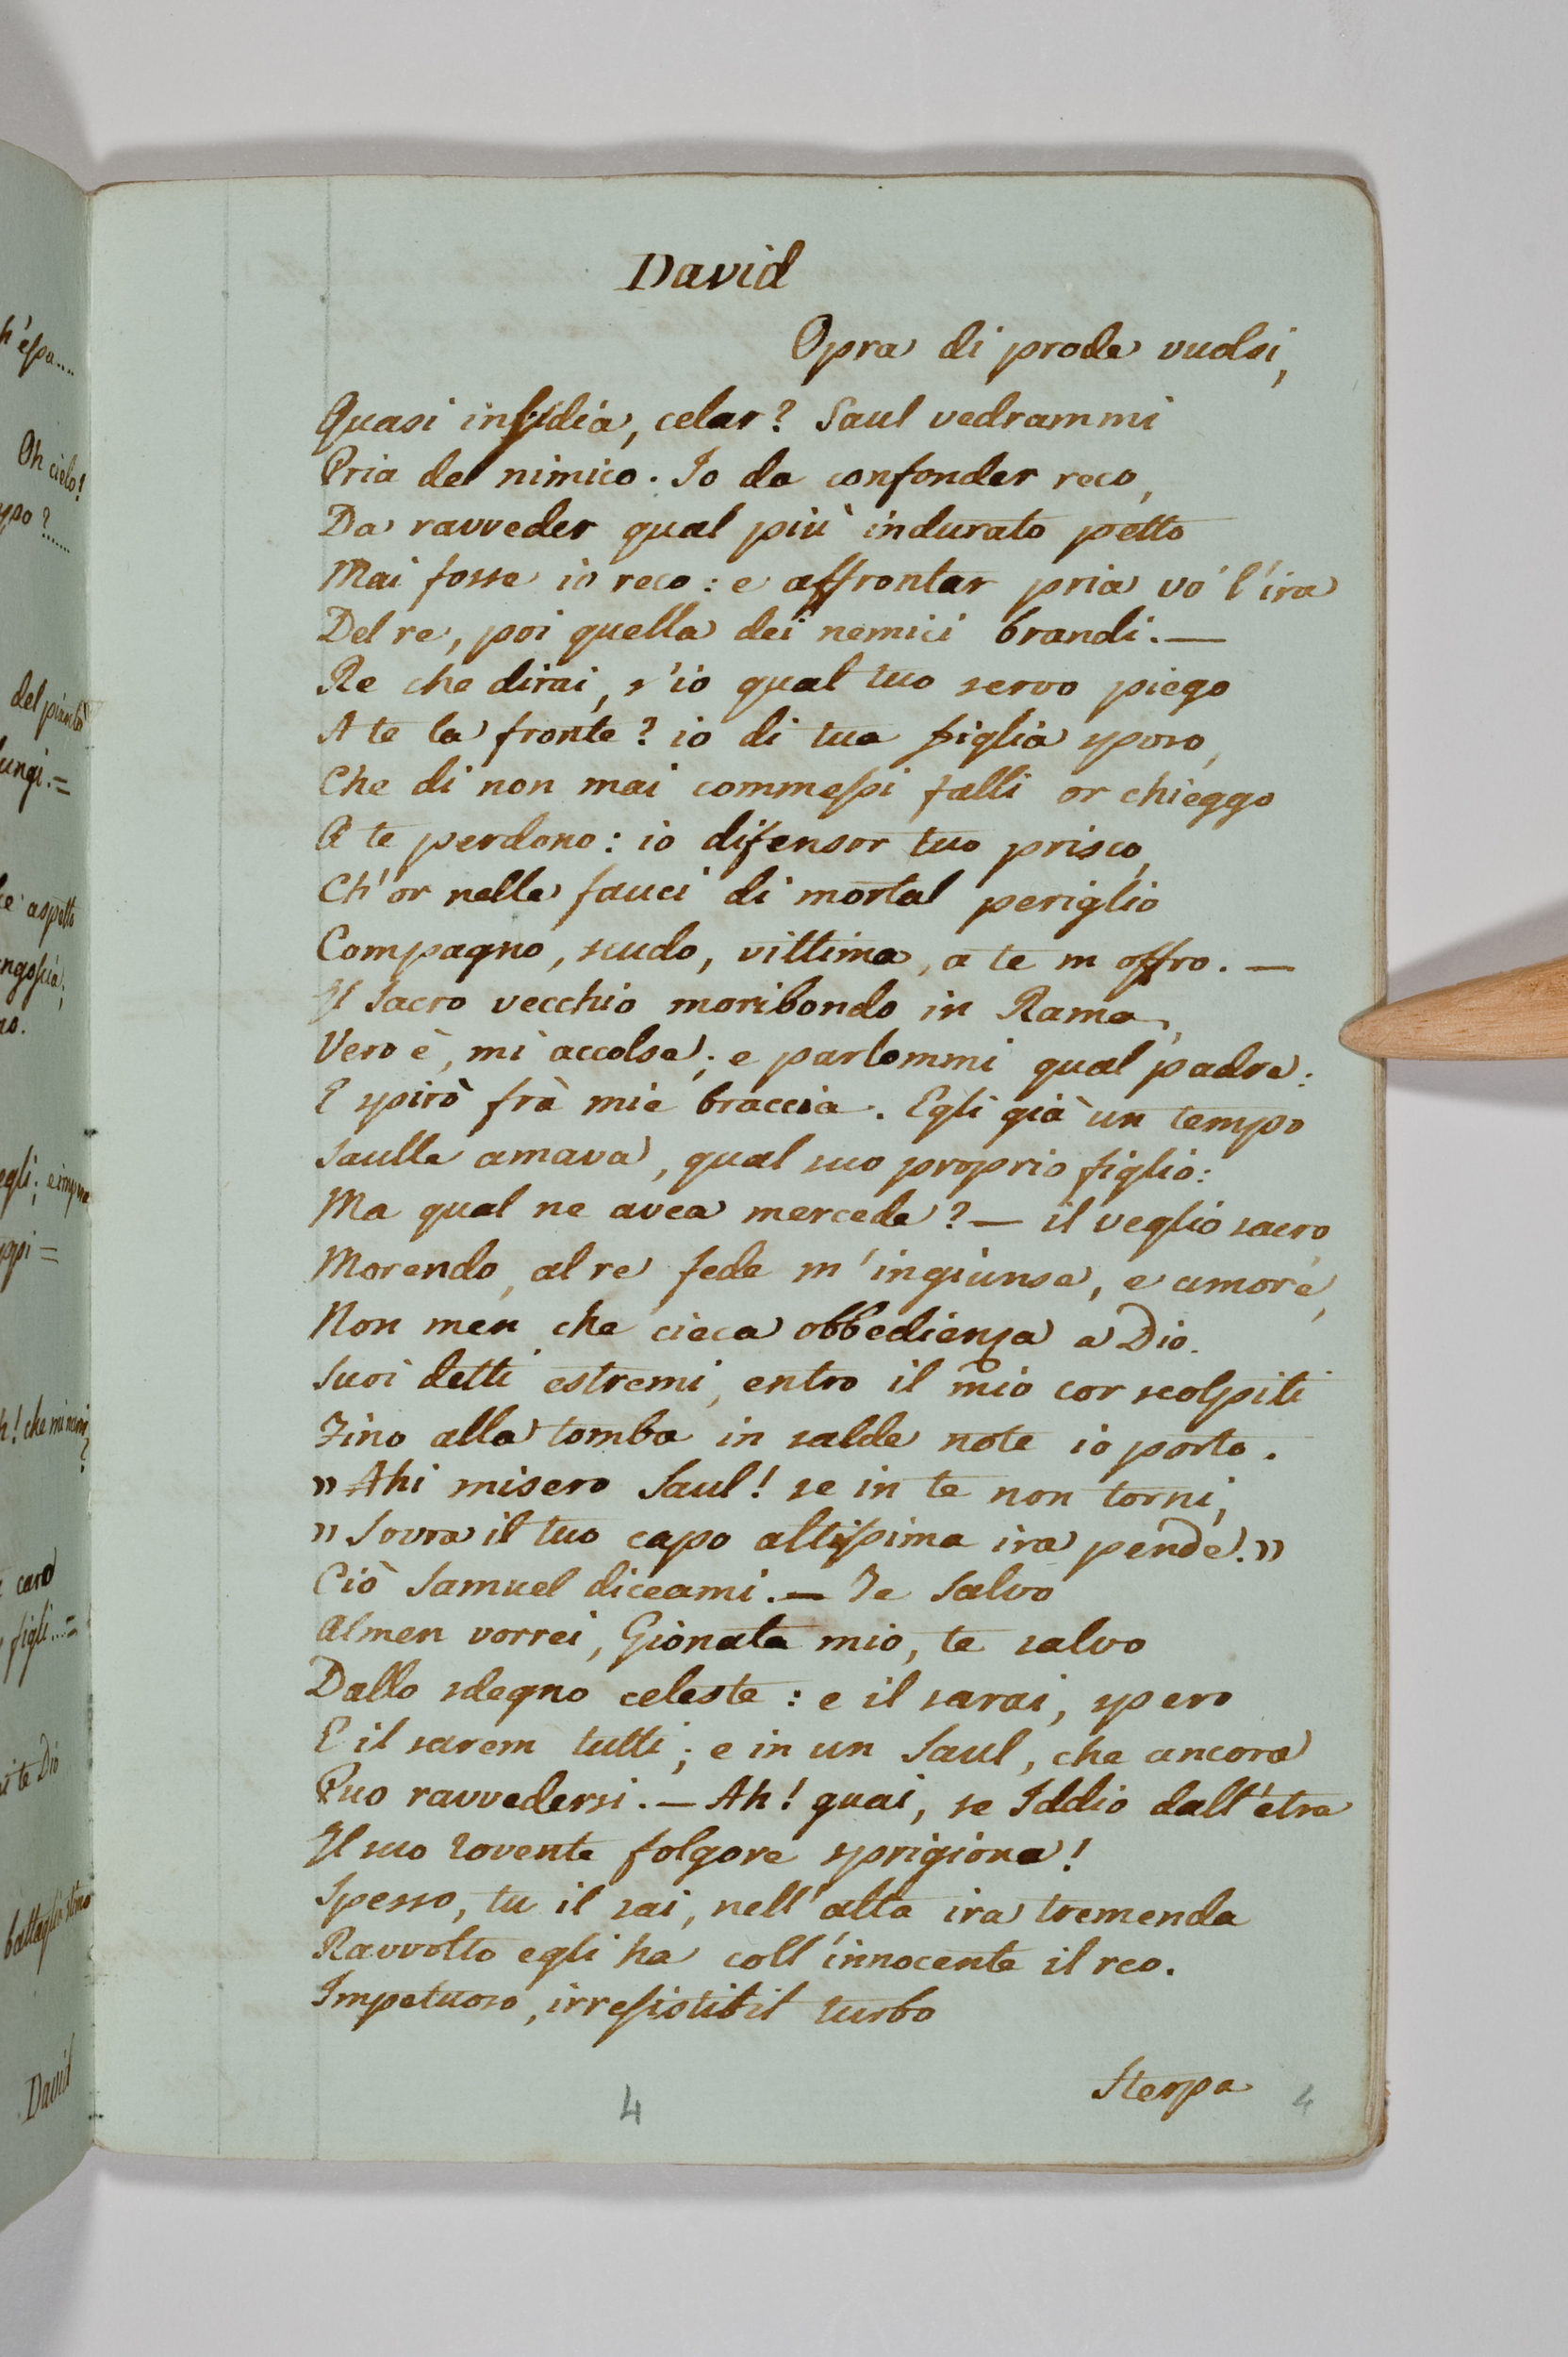 David
Opra di prode vuolsi,
Quasi insidia, celar? Saul vedrammi
Pria del nimico. Io da confonder reco,
Da ravveder qual più indurato petto
Mai fosse io reco: e affrontar pria vo' l'ira
Del re, poi quella dei nemici brandi. —
Re che dirai, s'io qual tuo servo piego
A te la fronte? io di tua figlia sposo,
Che di non mai commessi falli or chieggo
A te perdono: io difensor tuo prisco,
Ch'or nelle fauci di mortal periglio
Compagno, scudo, vittima, a te m offro. —
Il Sacro vecchio moribondo in Rama,
Vero è, mi accolse; e parlommi qual padre:
E spirò frà mie braccia. Egli già un tempo
Saulle amava, qual suo proprio figlio:
Ma qual ne avea mercede? — il veglio sacro
Morendo, al re fede m'ingiunse, e amore,
Non men che cieca obbedienza a Dio.
Suoi detti estremi, entro il mio cor scolpiti
Fino alla tomba in salde note io porto.
» Ahi misero Saul! se in te non torni,
» Sovra il tuo capo altissima ira pende.»
Ciò Samuel diceami. — Te Salvo
Almen vorrei, Gionata mio, te salvo
Dallo sdegno celeste: e il sarai, spero
E il sarem tutti; e in un Saul, che ancora
Puo ravvedersi. — Ah! guai, se Iddio dall'etra
Il suo rovente folgore sprigiona!
Spesso, tu il sai, nell'alta ira tremenda
Ravvolto egli ha coll'innocente il reo.
Impetuoso, irresistibil turbo
Sterpa
4
4
Oh cielo!
del
ungi. =
aspetto
no.
egli;
h! che
caro
figli...=
te Dio
David